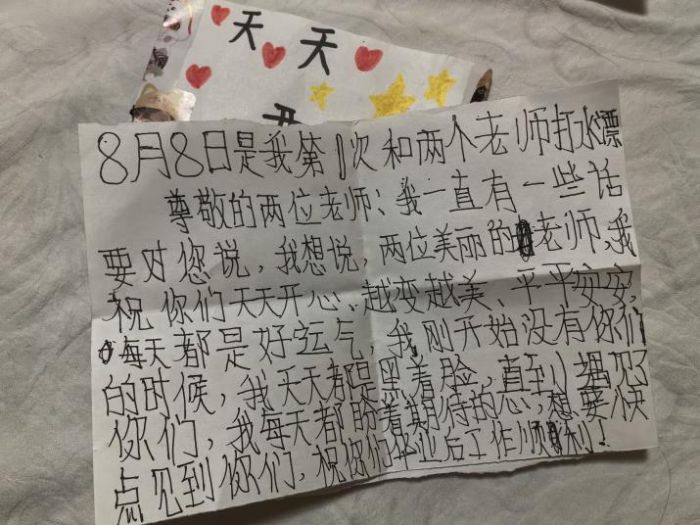 天天
开
8月8日是我第1次和两个老师打水漂
尊敬的两位老师、我一直有一些话
要对您说，我想说，两位美丽的老师、我
祝你们天天开心、越变越美、平平安安，
每天都是好运气，我刚开始没有你们
的时候，我天天都是黑着脸，直到遇见了
你们，我每天都盼着期待的心，想要快
点见到你们，祝你们毕业后工作顺利！